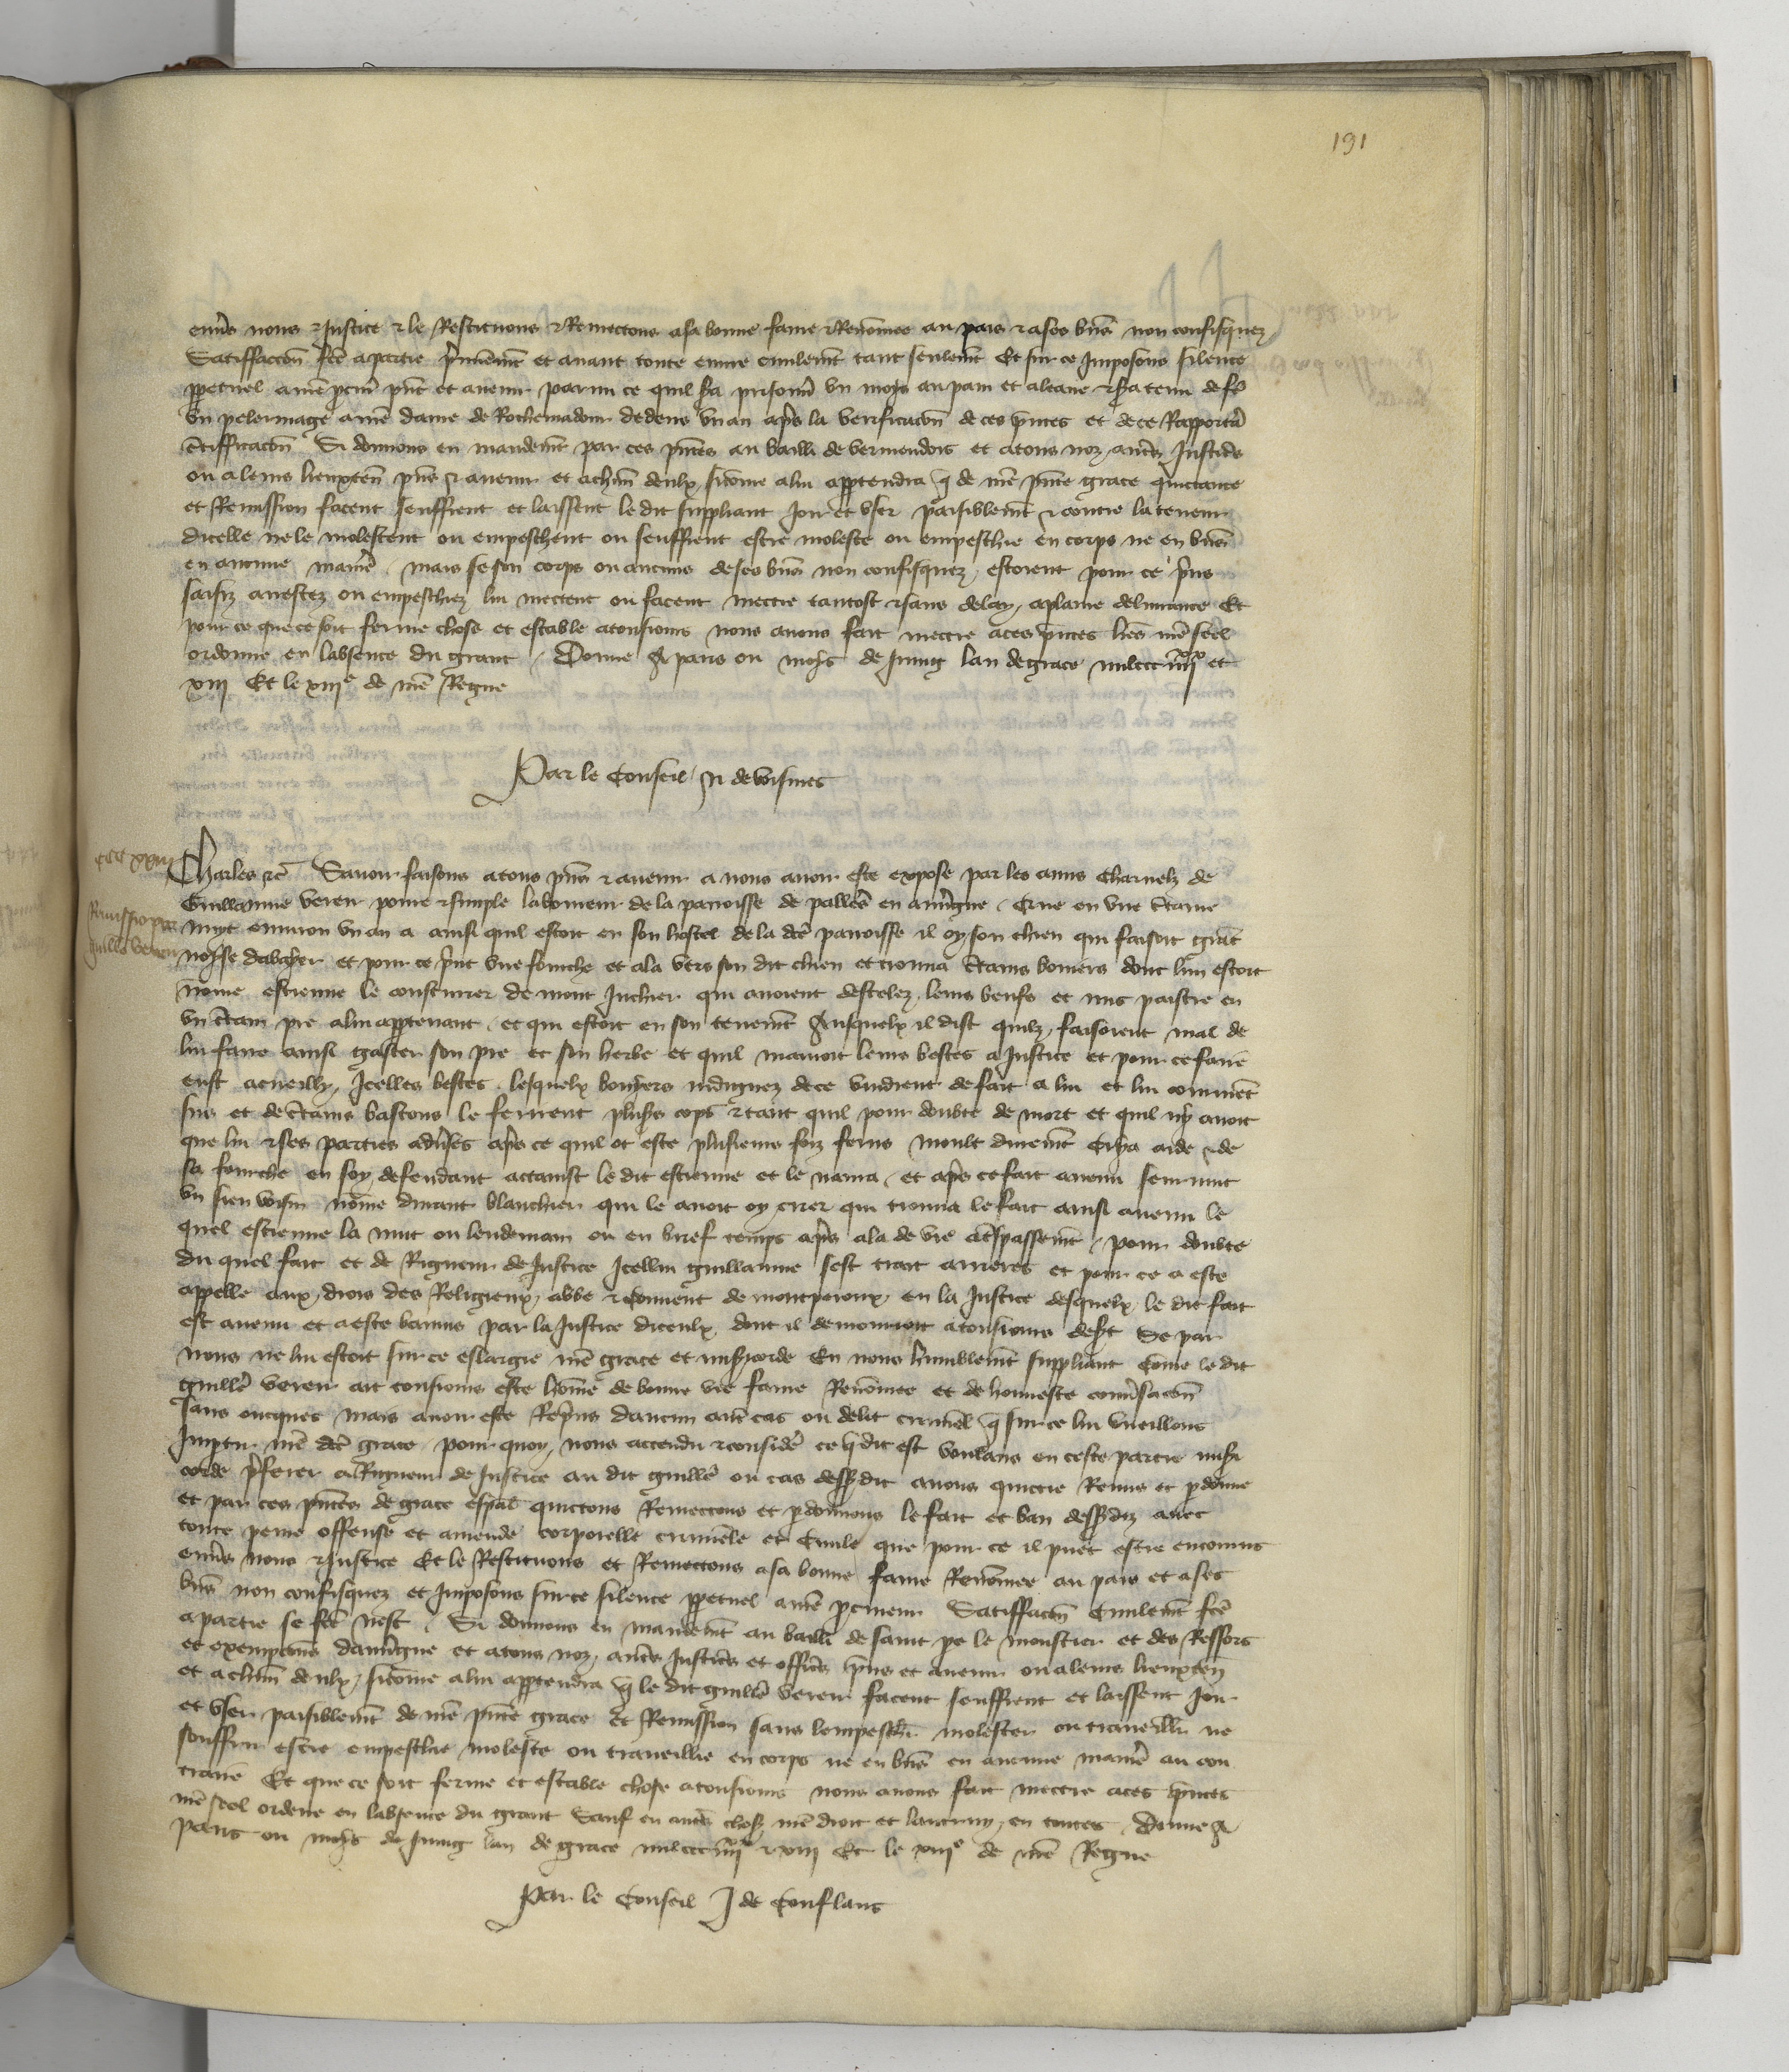 191
envers nous & Justice & le Restituons & Remectons a sa bonne fame & Renommee au pais & a ses biens non confisquez
Satiffaccion fcē a partie premierement et avant toute euvre civilement tant seulement Et sur ce Imposons silence
perpetuel a nrē procur pñt et avenir parmi ce quil sera prisonnier un mois au pain et a leaue & sera tenu de fē
un pelerinage a nrē dame de Rochemadour dedens un an apres la verificacion de ces pñtes et de ce Rapporter
certifficacion Si donnons en mandement par ces pñtes au bailli de vermendois et a tous noz autres Justiciers
ou a leurs lieuxten pñs & avenir et a chūn deulx sicōme a lui appartendra que de nrē pñte grace quictance
et Remission facent seuffrent et laissent le dit suppliant Joir et user paisiblement & contre la teneur
dicelle ne le molestent ou empeschent ou seuffrent estre moleste ou empeschie en corps ne en biens
en aucune maniere mais se son corps ou aucuns de ses biens non confisquez estoient pour ce prins
saisiz arrestez ou empeschiez lui mectent ou facent mectre tantost & sans delay a plaine delivrance Et
pour ce que ce soit ferme chose et estable a tousiours nous avons fait mectre a ces pñtes lres nrē seel
ordonne en labsence du grant Donne A paris ou mois de Juing lan de grace mil ccc iiijxx et
xiij Et le xiije de nrē Regne
Par le Conseil N de voisines
ccc xxiiij
Charles &c Savoir faisons a tous pñs & avenir a nous avoir este expose par les amis charnelz de
Guillaume verer povre & simple laboureur de la parroisse de en auvergne Que en une certaine
Remissio pro
guillō verer
nuyt environ un an a ainsi quil estoit en son hostel de la dcē parroisse il oy son chien qui faisoit grāt
noise dabayer et pour ce print une fourche et ala vers son dit chien et trouva certains boviers dont lun estoit
nōme estienne le cousturier de mont qui avoient destelez leurs beufs et mis paistre en
un certain pre a lui appartenant et qui estoit en son tenement Ausquelx il dist quilz faisoient mal de
lui faire ainsi gaster son pre et son herbe et quil menroit leurs bestes a Justice et pour ce faire
eust acueilly Icelles bestes lesquelx boviers indignez de ce vindrent de fait a lui et lui coururent
sus et de certains bastons le ferirent plusieurs cops & tant quil pour doubte de mort et quil ny avoit
que lui & ses parties adverses apres ce quil ot este plusieurs foiz ferus moult durement Cria aide & de
sa fourche en soy defendant attaint le dit estienne et le navra et apres ce fait avenu seurvint
un sien voisin nōme durant blanchier qui le avoit oy crier qui trouva le fait ainsi avenu le
quel estienne la nuit ou lendemain ou en brief temps apres ala de vie a trespassement pour doubte
du quel fait et de Rigueur de Justice Icellui guillaume sest trait arrieres et pour ce a este
appelle aux drois des Religieux abbe & couvent de montperoux en la Justice desquelx le dit fait
est avenu et a este bannis par la Justice diceulx dont il demourroit a tousiours desert se par
nous ne lui estoit sur ce eslargie nrē grace et misericorde En nous humblement suppliant cōme le dit
guillē verer ait tousiours este hōme de bonne vie fame Renōmee et de honneste conversacion
sans oncques mais avoir este Reprins daucun autre cas ou delit criminel que sur ce lui vueillons
Impartir nrē dcē grace pour quoy nous attendu & considere ce que dit est voulans en ceste partie miseri
corde preferer a Rigueur de Justice au dit guillē ou cas dessusdit avons quictie Remis et pardonne
et par ces pñtes de grace especial quictons Remectons et pardonnons le fait et ban dessusdiz avec
toute peine offense et amende corporelle criminele et Civile que pour ce il puet estre encourus
envers nous & Justice Et le Restituons et Remectons a sa bonne fame Renōmee au pais et a ses
biens non confisquez et Imposons sur ce silence perpetuel a nrē procureur Satiffaccion Civilement fcē
a partie se fcē nest Si donnons en mandement au bailli de saint pe le moustier et des Ressors
et exempcions dauvergne et a tous noz autres Justiciers et officiers pñs et avenir ou a leurs lieuxten
et a chūn deulx sicōme a lui appartendra que le dit guillē verer facent seuffrent et laissent Joir
et user paisiblement de nrē pñte grace et Remission sans lempescher molester ou traveillier ne
souffrir estre empeschie moleste ou traveillie en corps ne en biens en aucune maniere au con
traire Et que ce soit ferme et estable chose a tousiours nous avons fait mectre a ces pñtes
nrē seel ordene en labsence du grant Sauf en autres choses nrē droit et lautruy en toutes Donne A
paris ou mois de Juing lan de grace mil ccc iiijxx & xiij Et le xiije de nrē Regne
Par le Conseil J de Conflans